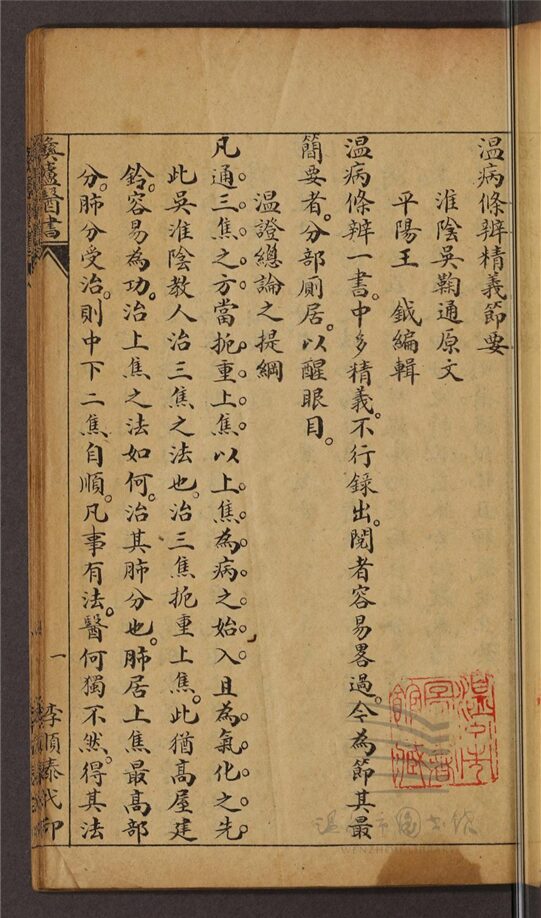 温病條辨精義節要
淮陰吳鞠通原文
平陽王 鉞編輯
温病條辨一書。中多精義。不行錄出。閱者容易畧過。今為節其最
簡要者。分部廁居。以醒眼目。
温證總論之提綱
凡通三焦之方當扼重上焦以上焦為病之始入且為氣化之先
此吳淮陰教人治三焦之法也。治三焦扼重上焦。此猶高屋建
鈴。容易為功。治上焦之法如何。治其肺分也。肺居上焦最高部
分。肺分受治。則中下二焦自順。凡事有法。醫何獨不然。得其法
廬醫書
一
李順泰代印
温州市图书馆